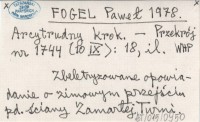 FOGEL Paweł 1978.
Arcytrudny krok. — Przekrój
nr 1744 (10 IX): 18, il. WAP
Zbeletryzowane opowia-
danie o zimowym przejściu
pd. ściany Zamarłej Turni.